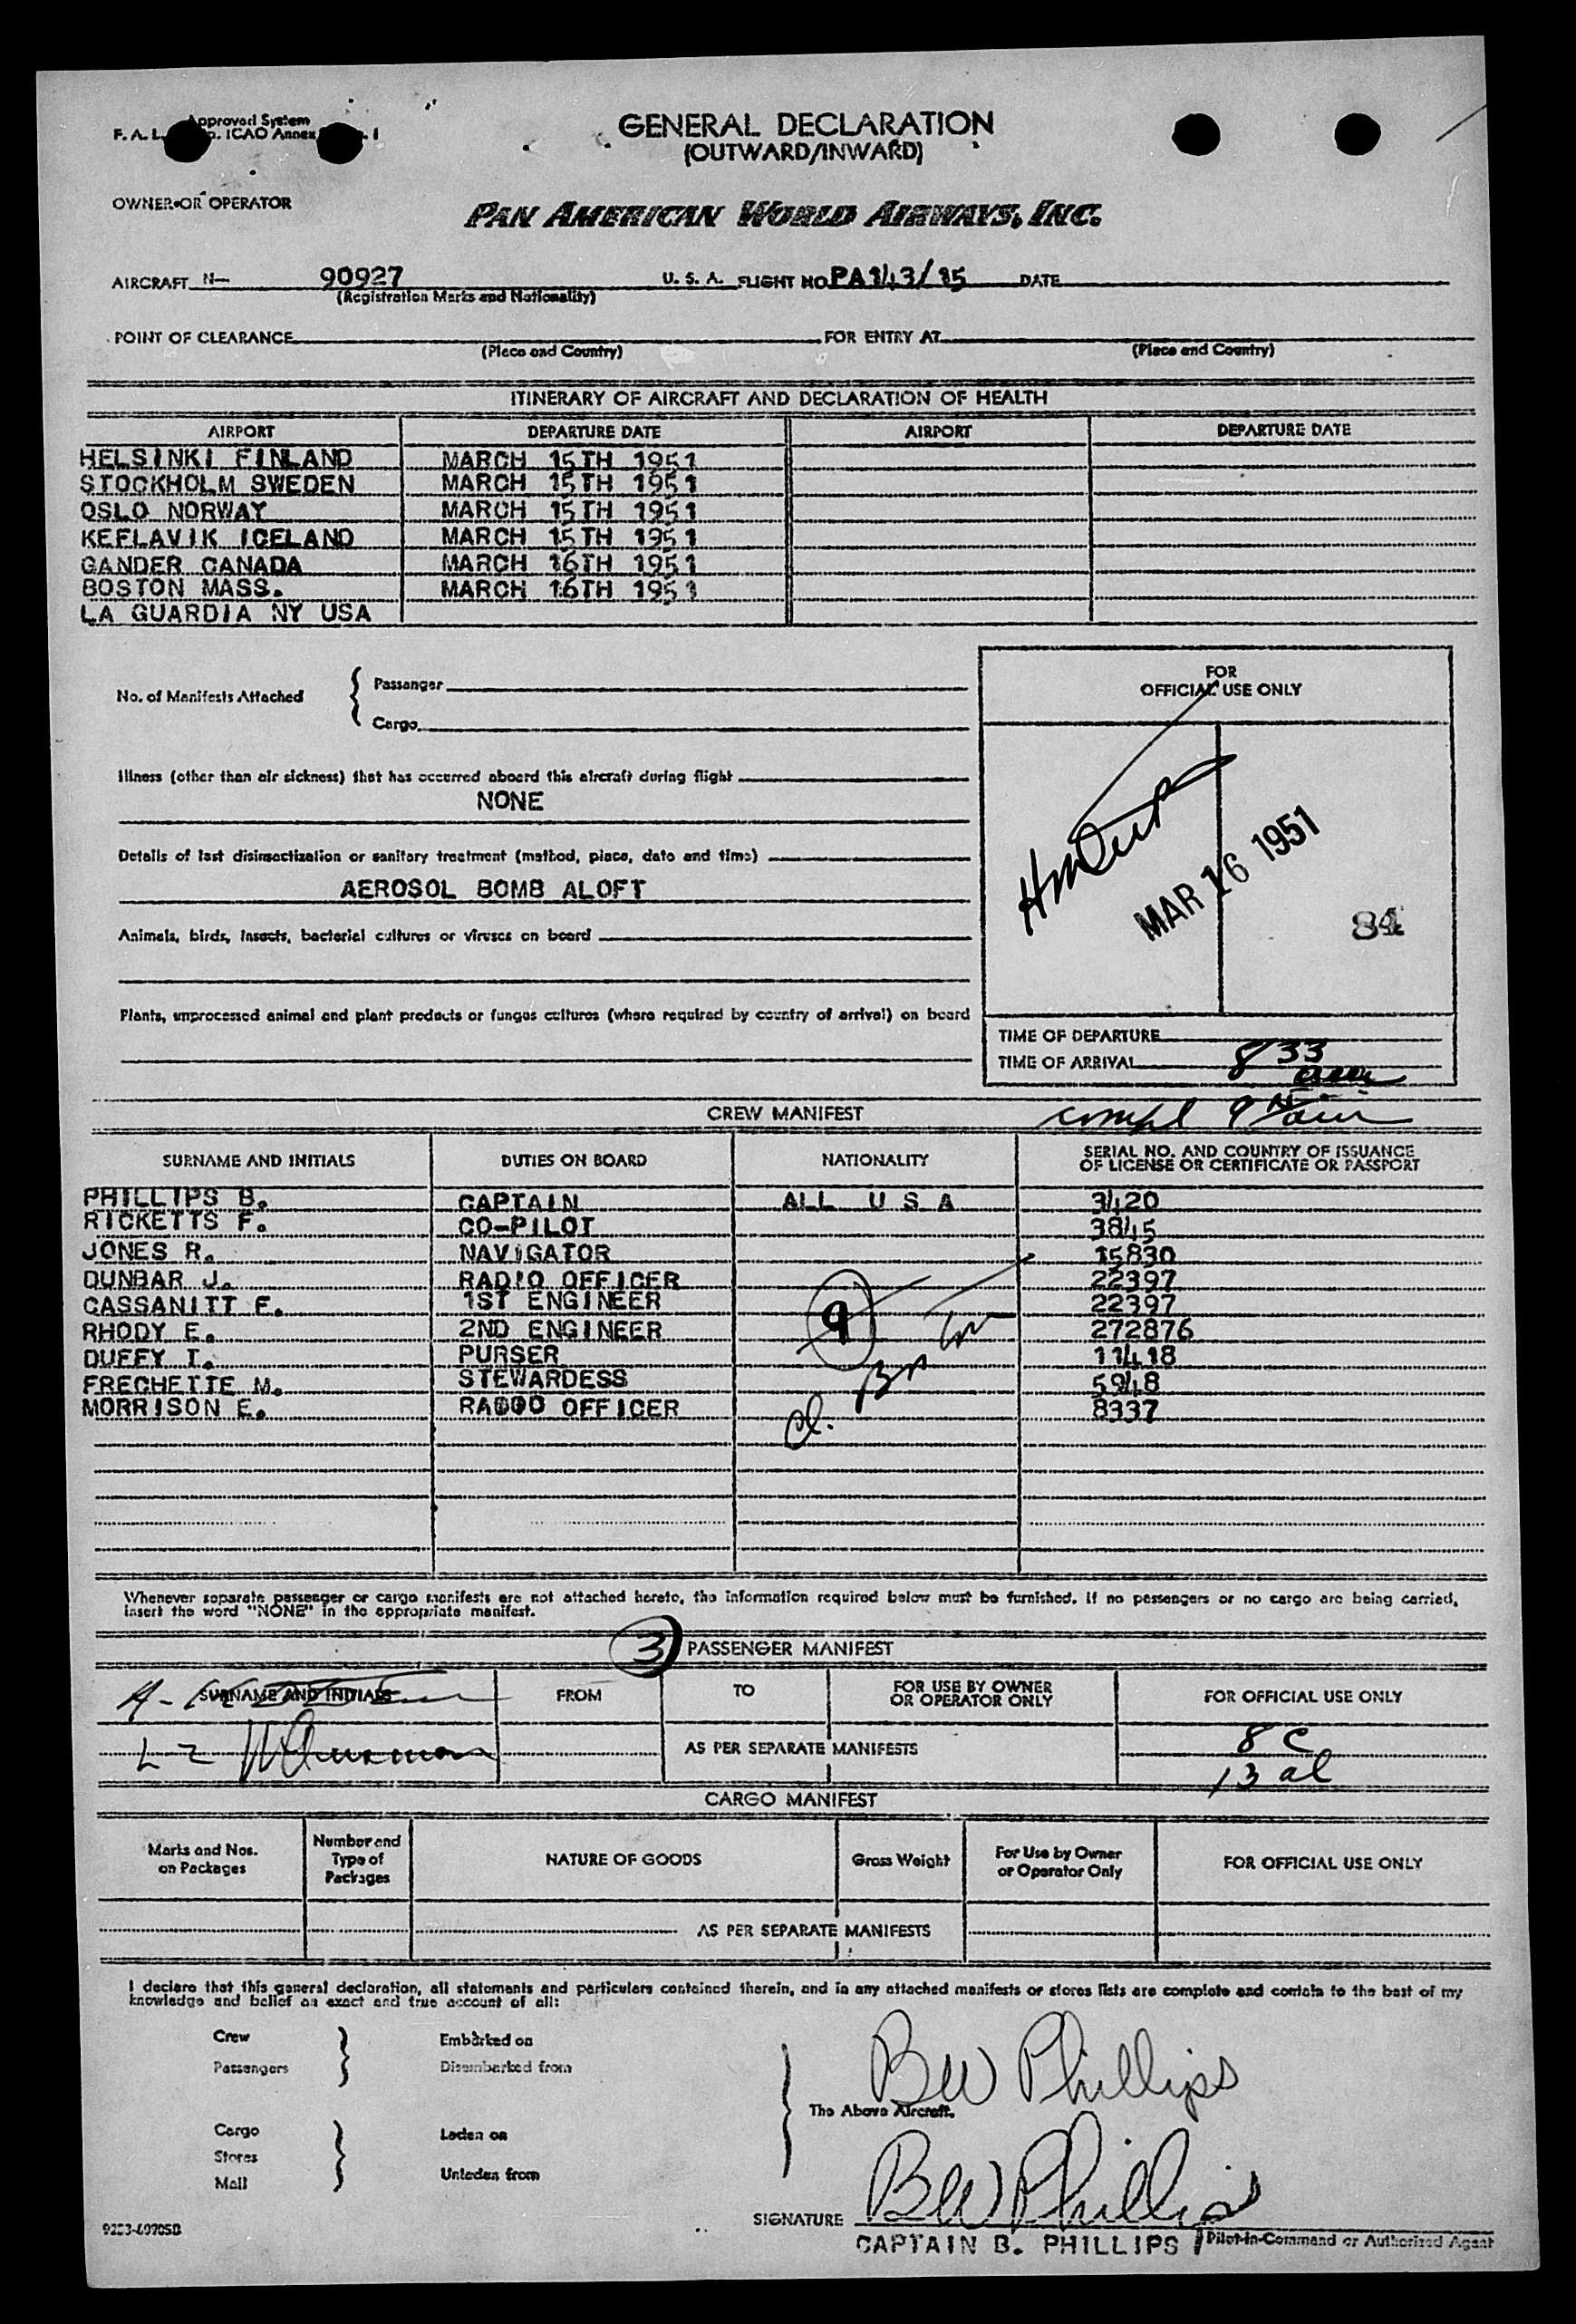 Approved System
F. A. L. ICAO Annex
GENERAL DECLARATION
(OUTWARD/INWARD)
OWNER OR OPERATOR
PAN AMERICAN WORLD AIRWAYS, INC.
AIRCRAFT N— 90927 U. S. A. FLIGHT NO. PA 143/15 DATE
(Registration Marks and Nationality)
POINT OF CLEARANCE FOR ENTRY AT
(Place and Country) (Place and Country)
ITINERARY OF AIRCRAFT AND DECLARATION OF HEALTH
AIRPORT DEPARTURE DATE AIRPORT DEPARTURE DATE
HELSINKI FINLAND MARCH 15TH 1951
STOCKHOLM SWEDEN MARCH 15TH 1951
OSLO NORWAY MARCH 15TH 1951
KEFLAVIK ICELAND MARCH 15TH 1951
GANDER CANADA MARCH 16TH 1951
BOSTON MASS. MARCH 16TH 1951
LA GUARDIA NY USA
No. of Manifests Attached
Passenger
Cargo
FOR
OFFICIAL USE ONLY
Illness (other than air sickness) that has occurred aboard this aircraft during flight
NONE
Details of last disinsectization or sanitary treatment (method, place, date and time)
AEROSOL BOMB ALOFT
MAR 16 1951
84
Animals, birds, insects, bacterial cultures or viruses on board
Plants, unprocessed animal and plant products or fungus cultures (where required by country of arrival) on board
TIME OF DEPARTURE
TIME OF ARRIVAL 8 33
compl 9
CREW MANIFEST
SURNAME AND INITIALS DUTIES ON BOARD NATIONALITY SERIAL NO. AND COUNTRY OF ISSUANCE
OF LICENSE OR CERTIFICATE OR PASSPORT
PHILLIPS B. CAPTAIN ALL U S A 3420
RICKETTS F. CO-PILOT 3845
JONES R. NAVIGATOR 15830
DUNBAR J. RADIO OFFICER 22397
CASSANITT F. 1ST ENGINEER 22397
RHODY E. 2ND ENGINEER 272876
DUFFY T. PURSER 11418
FRECHETTE M. STEWARDESS 5948
MORRISON E. RADOO OFFICER 8337
9
Whenever separate passenger or cargo manifests are not attached hereto, the information required below must be furnished. If no passengers or no cargo are being carried,
insert the word "NONE" in the appropriate manifest.
3 PASSENGER MANIFEST
SURNAME AND INITIALS FROM TO FOR USE BY OWNER
OR OPERATOR ONLY FOR OFFICIAL USE ONLY
AS PER SEPARATE MANIFESTS 8 C
13 al
CARGO MANIFEST
Marks and Nos.
on Packages
Number and
Type of
Packages
NATURE OF GOODS
Gross Weight
For Use by Owner
or Operator Only
FOR OFFICIAL USE ONLY
AS PER SEPARATE MANIFESTS
I declare that this general declaration, all statements and particulars contained therein, and in any attached manifests or stores lists are complete and contain to the best of my
knowledge and belief an exact and true account of all:
Crew Embarked on
Passengers Disembarked from
BW Phillips
The Above Aircraft.
Cargo Laden on
Stores
Mail Unladen from
BW Phillips
SIGNATURE
CAPTAIN B. PHILLIPS Pilot-in-Command or Authorized Agent